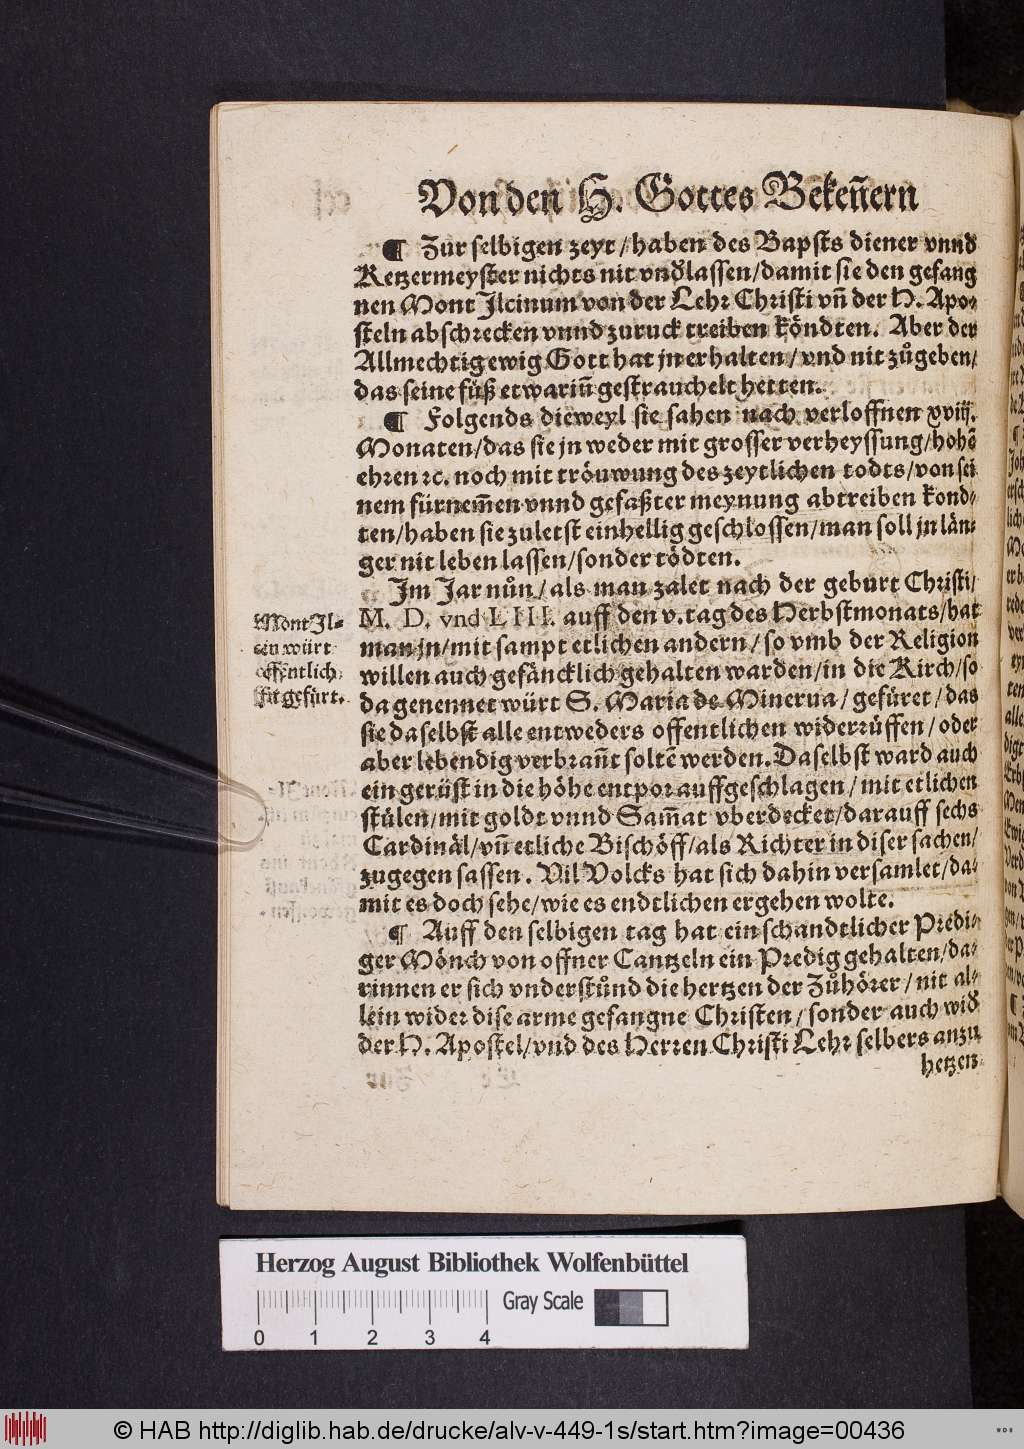 Von den H. Gottes Bekeñern
¶ Zur selbigen zeyt / haben des Bapsts diener vnnd
Ketzermeyster nichts nit vnd'lassen / damit sie den gefang
nen Mont Ilcinum von der Lehr Christi vñ der H. Apo-
steln abschrecken vnnd zuruck treiben köndten. Aber der
Allmechtig ewig Gott hat jn erhalten / vnd nit zůgeben /
das seine füß etwariñ gestrauchelt hetten.
¶ Folgends dieweyl sie sahen nach verloffnen xviij.
Monaten / das sie jn weder mit grosser verheyssung / hohẽ
ehren ꝛc. noch mit tröuwung des zeytlichen todts / von sei
nem fürnem̃en vnnd gefaßter meynung abtreiben kond-
ten / haben sie zuletst einhellig geschlossen / man soll jn län-
ger nit leben lassen / sonder tödten.
Im Jar nůn / als man zalet nach der geburt Christi /
M. D. vnd LIII. auff den v. tag des Herbstmonats / hat
man jn / mit sampt etlichen andern / so vmb der Religion
willen auch gefäncklich gehalten warden / in die Kirch / so
da genennet würt S. Maria de Minerua / gefüret / das
sie daselbst alle entweders offentlichen widerrüffen / oder
aber lebendig verbrañt soltẽ werden. Daselbst ward auch
ein gerüst in die höhe entpor auffgeschlagen / mit etlichen
stülen / mit goldt vnnd Sam̃at vberdecket / darauff sechs
Cardinäl / vñ etliche Bischöff / als Richter in diser sachen /
zugegen sassen. Vil Volcks hat sich dahin versamlet / da-
mit es doch sehe / wie es endtlichen ergehen wolte.
¶ Auff den selbigen tag hat ein schandtlicher Predi-
ger Mönch von offner Cantzeln ein Predig gehalten / da-
rinnen er sich vnderstůnd die hertzen der Zůhörer / nit al-
lein wider dise arme gefangne Christen / sonder auch wid'
der H. Apostel / vnd des Herren Christi Lehr selbers anzu
hetzen
Mont Il-
cin würt
offentlich
fürgefürt.
Herzog August Bibliothek Wolfenbüttel
Gray Scale
0 1 2 3 4
© HAB http://diglib.hab.de/drucke/alv-v-449-1s/start.htm?image=00436